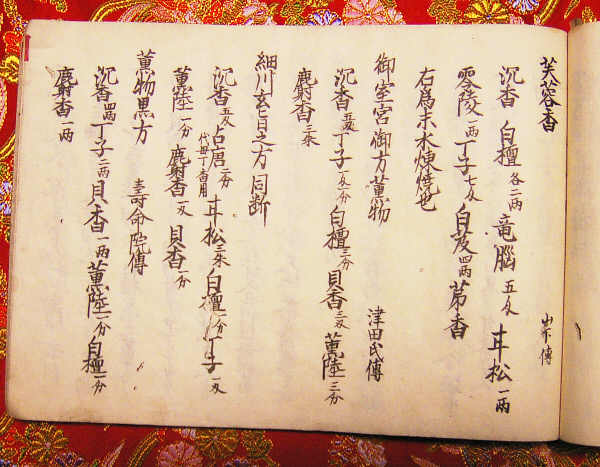 芙蓉香
山下傳
沉香 白檀各二両 竜脳五分 甘松一両
零陵一両 丁子七分 白芨四両 茅香
右為末水煉焼也
御室宮御方薫物
津田氏傳
沉香 丁子一分 白檀三分 貝香三分 薫陸三分
麝香三朱
細川玄旨之方同断
沉香五分 占唐一分 甘松三朱 白檀一分 丁子一分
代丗丁香用
薫陸一分 麝香一分 貝香一分
薫物黒方 壽命院傳
沉香四両 丁子二両 貝香一両 薫陸一分 白檀一分
麝香一両